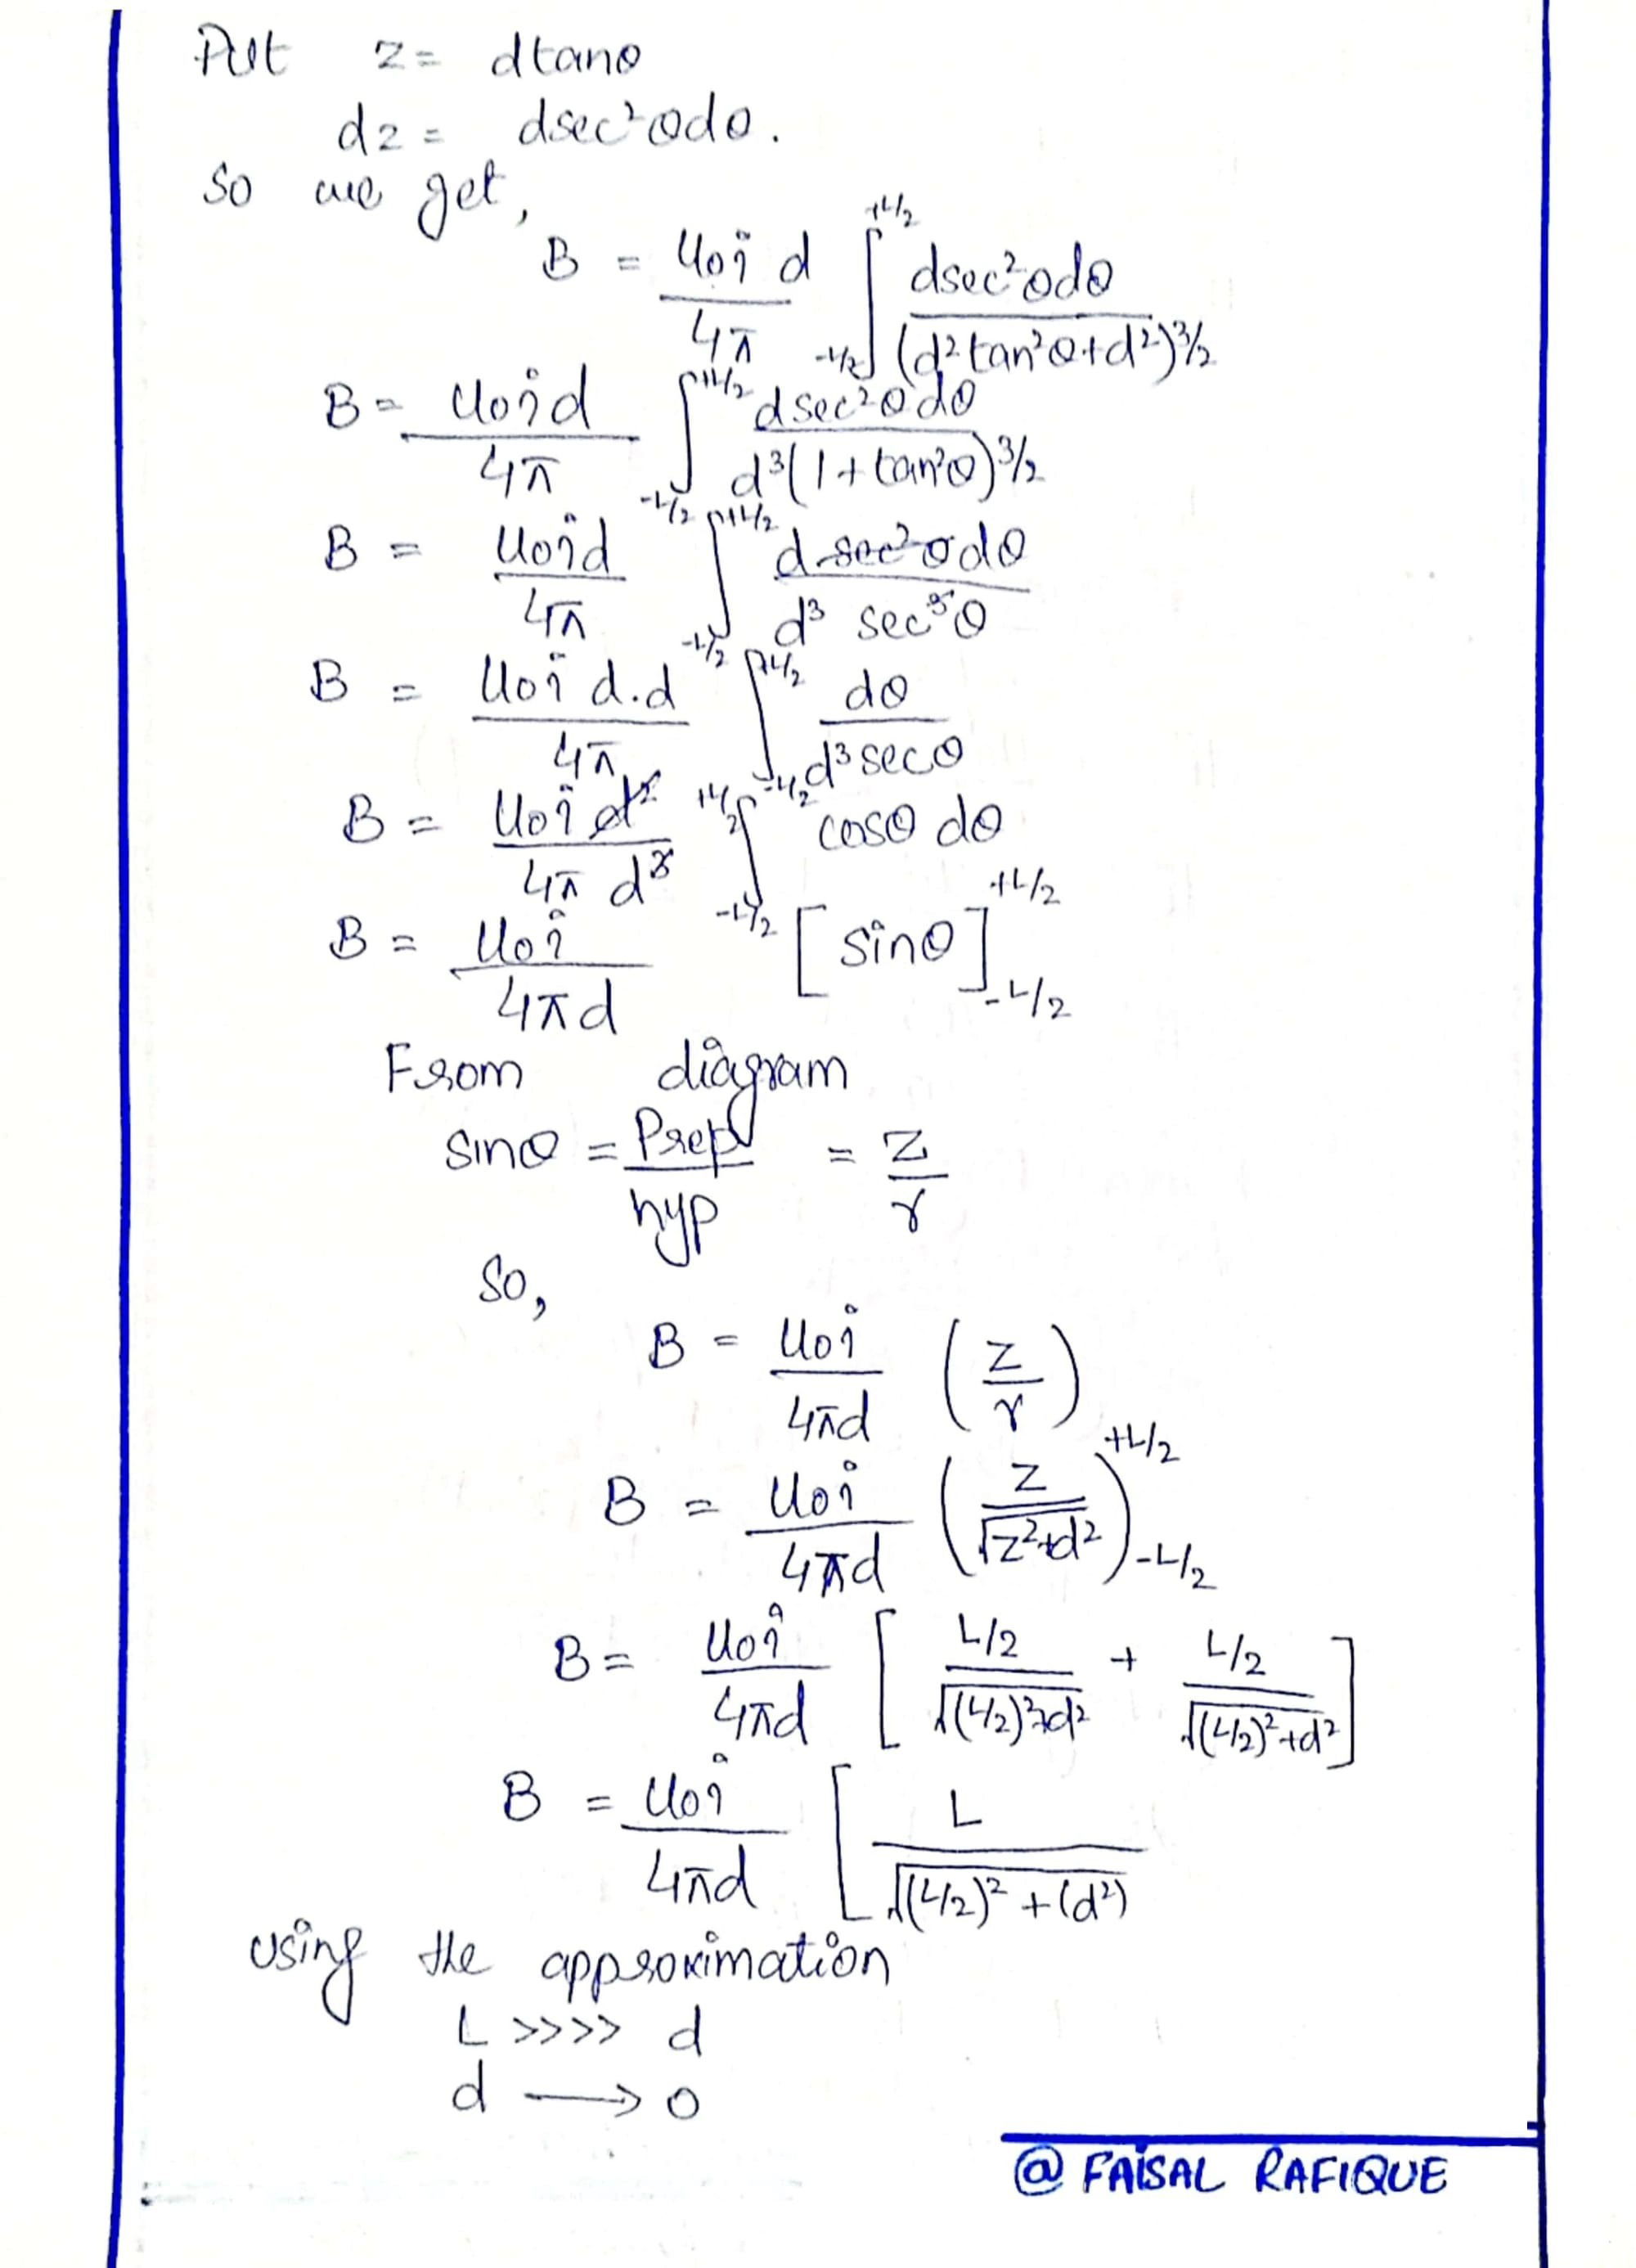 Put z = dtanθ
dz = dsec²θdθ.
So we get,
B = μ₀i d / 4π ∫_{-L/2}^{+L/2} dsec²θdθ / (d²tan²θ+d²)^{3/2}
B = μ₀id / 4π ∫_{-L/2}^{+L/2} dsec²θdθ / d³(1+tan²θ)^{3/2}
B = μ₀id / 4π ∫_{-L/2}^{+L/2} dsec²θdθ / d³ sec³θ
B = μ₀i d.d / 4π ∫_{-L/2}^{+L/2} dθ / d³secθ
B = μ₀i d² / 4π d³ ∫_{-L/2}^{+L/2} cosθ dθ
B = μ₀i / 4πd [sinθ]_{-L/2}^{+L/2}
From diagram
sinθ = Prep / hyp = z / r
So,
B = μ₀i / 4πd (z / r)
B = μ₀i / 4πd (z / √z²+d²)_{-L/2}^{+L/2}
B = μ₀i / 4πd [L/2 / √(L/2)²+d² + L/2 / √(L/2)²+d²]
B = μ₀i / 4πd [L / √(L/2)²+(d²)
using the approximation
L >>>> d
d ⟶ 0
@ FAISAL RAFIQUE